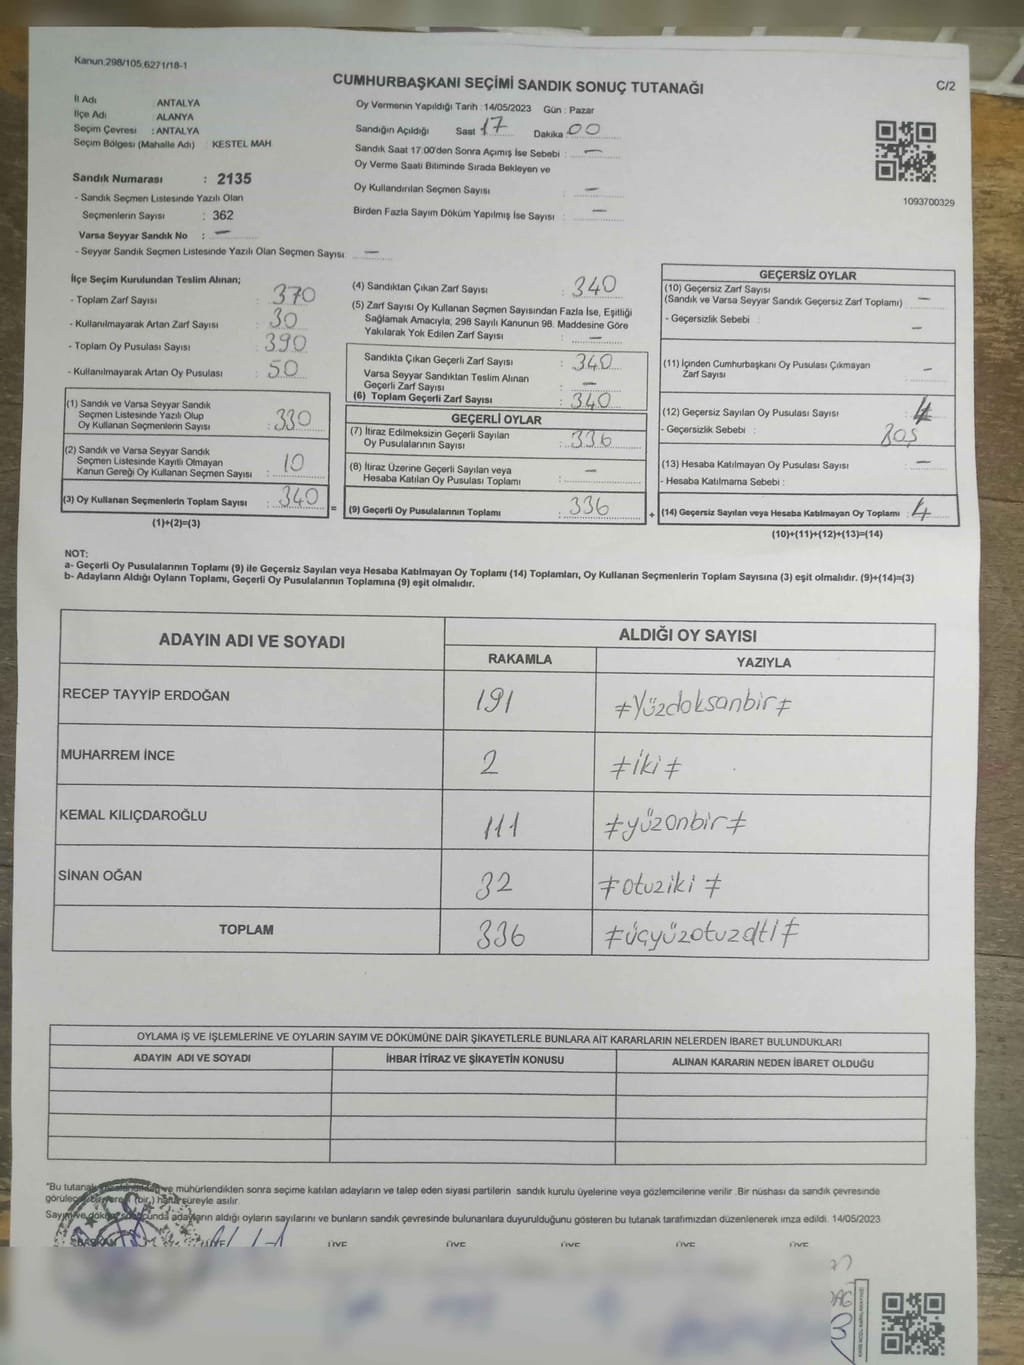 Kanun.298/105,6271/18-1
CUMHURBAŞKANI SEÇİMİ SANDIK SONUÇ TUTANAĞI
C/2
İl Adı ANTALYA
İlçe Adı ALANYA
Seçim Çevresi : ANTALYA
Seçim Bölgesi (Mahalle Adı) KESTEL MAH
Sandık Numarası : 2135
- Sandık Seçmen Listesinde Yazılı Olan
Seçmenlerin Sayısı : 362
Varsa Seyyar Sandık No : —
- Seyyar Sandık Seçmen Listesinde Yazılı Olan Seçmen Sayısı —
Oy Vermenin Yapıldığı Tarih : 14/05/2023 Gün : Pazar
Sandığın Açıldığı Saat 17 Dakika 00
Sandık Saat 17:00'den Sonra Açımış İse Sebebi : —
Oy Verme Saati Bitiminde Sırada Bekleyen ve
Oy Kullandırılan Seçmen Sayısı : —
Birden Fazla Sayım Döküm Yapılmış İse Sayısı : —
1093700329
İlçe Seçim Kurulundan Teslim Alınan;
- Toplam Zarf Sayısı : 370
- Kullanılmayarak Artan Zarf Sayısı : 30
- Toplam Oy Pusulası Sayısı : 390
- Kullanılmayarak Artan Oy Pusulası : 50
(1) Sandık ve Varsa Seyyar Sandık
Seçmen Listesinde Yazılı Olup
Oy Kullanan Seçmenlerin Sayısı : 330
(2) Sandık ve Varsa Seyyar Sandık
Seçmen Listesinde Kayıtlı Olmayan
Kanun Gereği Oy Kullanan Seçmen Sayısı : 10
(3) Oy Kullanan Seçmenlerin Toplam Sayısı : 340
(1)+(2)=(3)
(4) Sandıktan Çıkan Zarf Sayısı : 340
(5) Zarf Sayısı Oy Kullanan Seçmen Sayısından Fazla İse, Eşitliği
Sağlamak Amacıyla, 298 Sayılı Kanunun 98. Maddesine Göre
Yakılarak Yok Edilen Zarf Sayısı : —
Sandıkta Çıkan Geçerli Zarf Sayısı : 340
Varsa Seyyar Sandıktan Teslim Alınan
Geçerli Zarf Sayısı : —
(6) Toplam Geçerli Zarf Sayısı : 340
GEÇERLİ OYLAR
(7) İtiraz Edilmeksizin Geçerli Sayılan
Oy Pusulalarının Sayısı : 336
(8) İtiraz Üzerine Geçerli Sayılan veya
Hesaba Katılan Oy Pusulası Toplamı : —
= (9) Geçerli Oy Pusulalarının Toplamı : 336
GEÇERSİZ OYLAR
(10) Geçersiz Zarf Sayısı
(Sandık ve Varsa Seyyar Sandık Geçersiz Zarf Toplamı) —
- Geçersizlik Sebebi : —
(11) İçinden Cumhurbaşkanı Oy Pusulası Çıkmayan
Zarf Sayısı : —
(12) Geçersiz Sayılan Oy Pusulası Sayısı : 4
- Geçersizlik Sebebi : BOŞ
(13) Hesaba Katılmayan Oy Pusulası Sayısı : —
- Hesaba Katılmama Sebebi :
+ (14) Geçersiz Sayılan veya Hesaba Katılmayan Oy Toplamı : 4
(10)+(11)+(12)+(13)=(14)
NOT:
a- Geçerli Oy Pusulalarının Toplamı (9) ile Geçersiz Sayılan veya Hesaba Katılmayan Oy Toplamı (14) Toplamları, Oy Kullanan Seçmenlerin Toplam Sayısına (3) eşit olmalıdır. (9)+(14)=(3)
b- Adayların Aldığı Oyların Toplamı, Geçerli Oy Pusulalarının Toplamına (9) eşit olmalıdır.
ADAYIN ADI VE SOYADI ALDIĞI OY SAYISI
RAKAMLA YAZIYLA
RECEP TAYYİP ERDOĞAN 191 ≠Yüzdoksanbir≠
MUHARREM İNCE 2 ≠iki≠
KEMAL KILIÇDAROĞLU 111 ≠yüzonbir≠
SİNAN OĞAN 32 ≠otuziki≠
TOPLAM 336 ≠üçyüzotuzaltı≠
OYLAMA İŞ VE İŞLEMLERİNE VE OYLARIN SAYIM VE DÖKÜMÜNE DAİR ŞİKAYETLERLE BUNLARA AİT KARARLARIN NELERDEN İBARET BULUNDUKLARI
ADAYIN ADI VE SOYADI İHBAR İTİRAZ VE ŞİKAYETİN KONUSU ALINAN KARARIN NEDEN İBARET OLDUĞU
"Bu tutanak ve mühürlendikten sonra seçime katılan adayların ve talep eden siyasi partilerin sandık kurulu üyelerine veya gözlemcilerine verilir .Bir nüshası da sandık çevresinde
(bir) hafta süreyle asılır.
adayların aldığı oyların sayılarını ve bunların sandık çevresinde bulunanlara duyurulduğunu gösteren bu tutanak tarafımızdan düzenlenerek imza edildi. 14/05/2023
BAŞKAN ÜYE ÜYE ÜYE ÜYE ÜYE ÜYE